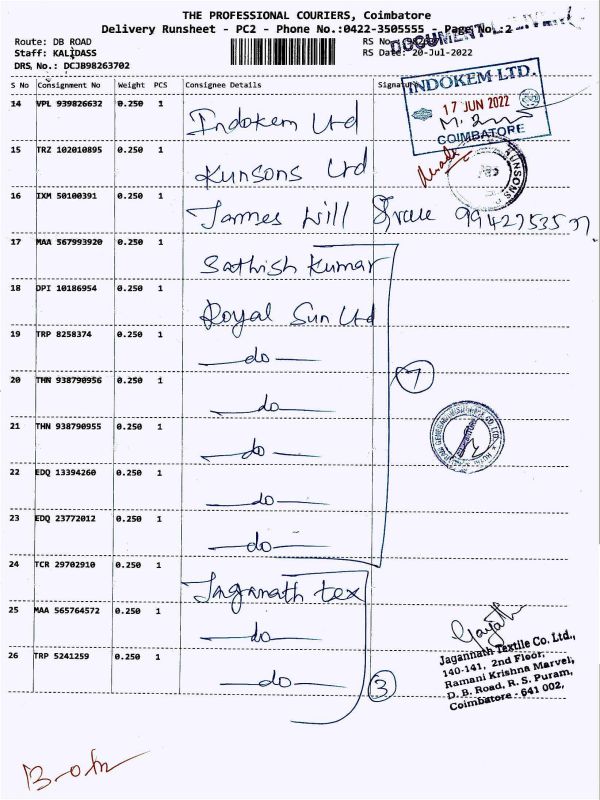 THE PROFESSIONAL COURIERS, Coimbatore
Delivery Runsheet - PC2 - Phone No.:0422-3505555 - Page No.:2
Route: DB ROAD
Staff: KALIDASS
DRS No.: DCJB98263702
RS No.
RS Date: 20-Jul-2022
S No Consignment No Weight PCS Consignee Details Signature
INDOKEM LTD.
17 JUN 2022
COIMBATORE
14 VPL 939826632 0.250 1 Indokem Ltd
15 TRZ 102010895 0.250 1 Kunsons Ltd
KUNSONS
16 IXM 50100391 0.250 1 James will
17 MAA 567993920 0.250 1 Sathish Kumar
18 DPI 10186954 0.250 1 Royal Sun Ltd
19 TRP 8258374 0.250 1 do
20 THN 938790956 0.250 1 do
7
21 THN 938790955 0.250 1 do
22 EDQ 13394260 0.250 1 do
23 EDQ 23772012 0.250 1 do
24 TCR 29702910 0.250 1 Jaganath tex
25 MAA 565764572 0.250 1 do
26 TRP 5241259 0.250 1 do
3
Jagannath Textile Co. Ltd.,
140-141, 2nd Floor,
Ramani Krishna Marvel,
D. B. Road, R. S. Puram,
Coimbatore - 641 002.